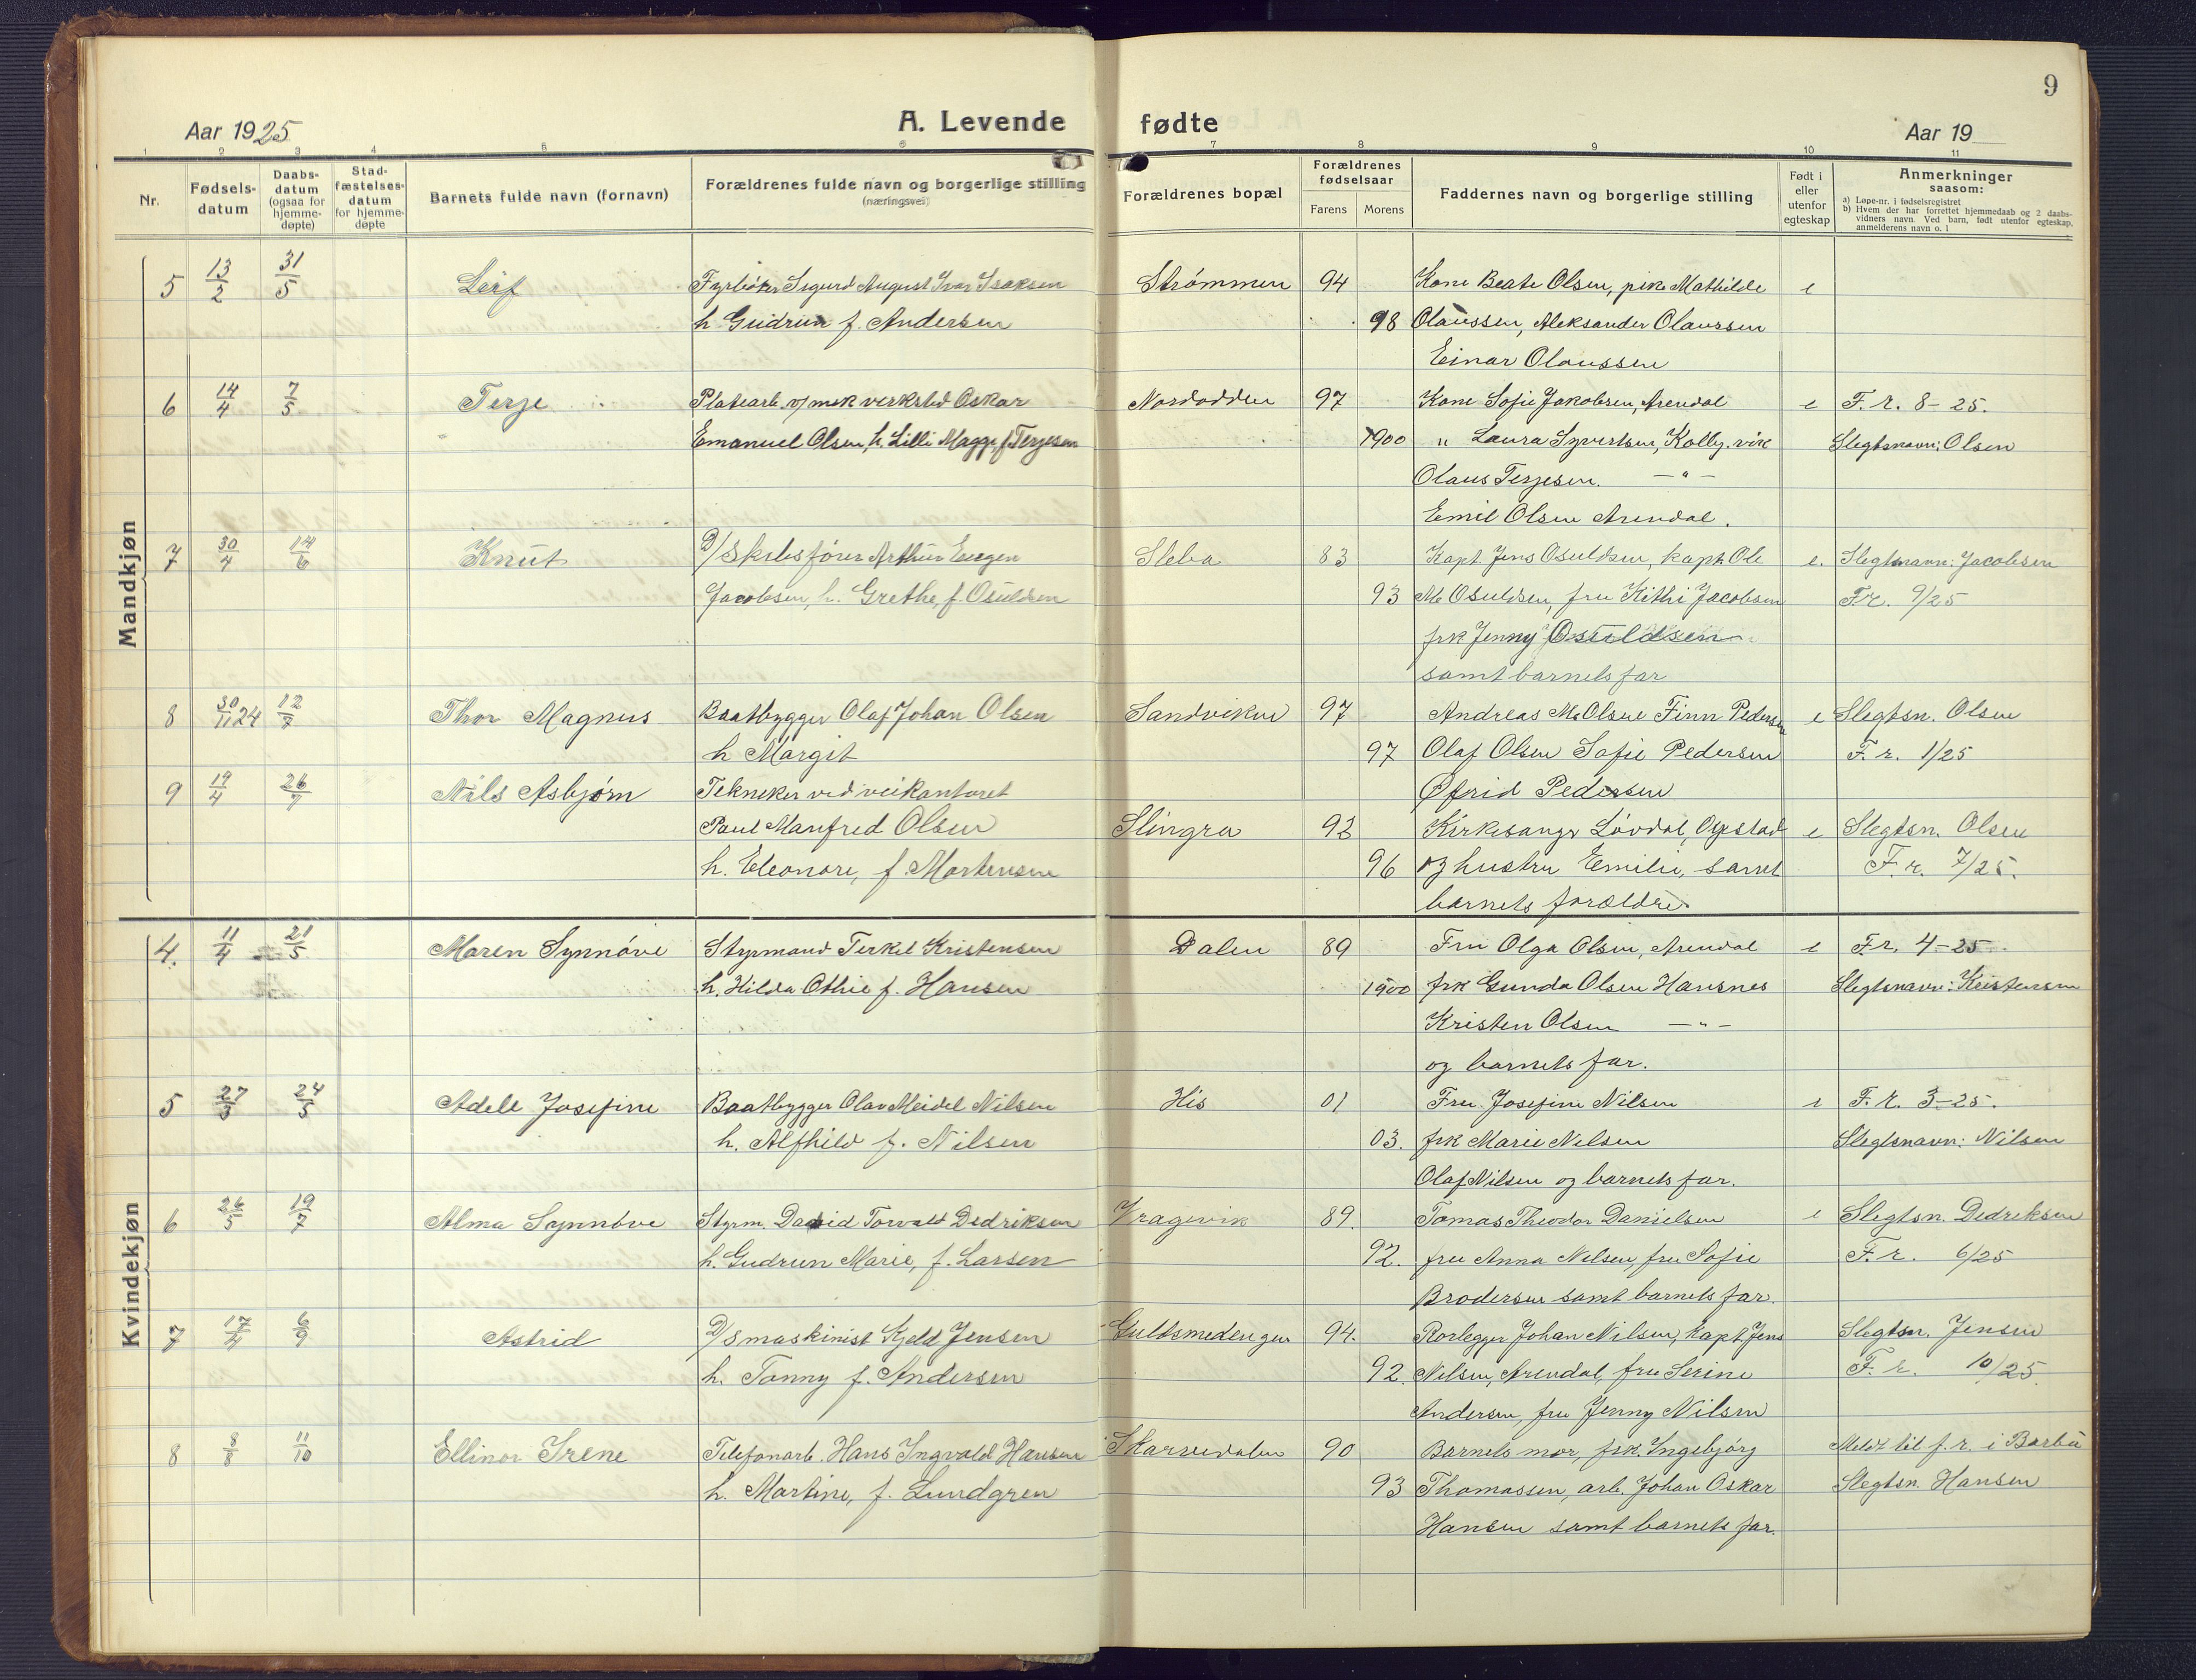 9
Aar 1925
A. Levende fødte
Aar 19
1 2 3 4 5 6 7 8 9 10 11
Nr.
Fødsels-
datum
Daabs-
datum
(ogsaa for
hjemme-
døpte)
Stad-
fæstelses-
datum
for hjemme-
døpte
Barnets fulde navn (fornavn)
Forældrenes fulde navn og borgerlige stilling
(næringsvei)
Forældrenes bopæl
Forældrenes
fødselsaar
Farens Morens
Faddernes navn og borgerlige stilling
Født i
eller
utenfor
egteskap
Anmerkninger
saasom:
a) Løpe-nr. i fødselsregistret
b) Hvem der har forrettet hjemmedaab og 2 daabs-
vidners navn. Ved barn, født utenfor egteskap,
anmelderens navn o. l
Mandkjøn
5 13/2 31/5 Leif Fyrbøter Sigurd August Ivar Isaksen Strømmen 94 Kone Beate Olsen, pike Mathilde e
h Gudrun f. Andersen 98 Olaussen, Aleksander Olaussen
Einar Olaussen
6 14/4 7/5 Terje Platearb. v/ mek verksted Oskar Nordodden 97 Kone Sofie Jakobsen, Arendal e F. r. 8-25.
Emanuel Olsen, h. Lilli Magge, f Terjesen 1900 " Laura Syvertsen, Kolby. vik Slegtsnavn: Olsen
Olaus Terjesen. — " —
Emil Olsen Arendal.
7 30/4 14/6 Knut D/Skibsfører Arthur Eugen Sleba 83 Kapt. Jens Osuldsen, kapt. Ole e. Slegtsnavn: Jacobsen
Jacobsen, h. Grethe, f. Osuldsen 93 M. Osuldsen, fru Kithi Jacobsen F.r. 9/25
frk Jenny Osuldsen
samt barnets far
8 30/11 24 12/7 Thor Magnus Baatbygger Olaf Johan Olsen Sandviken 97 Andreas M. Olsen Finn Pedersen e Slegtsn. Olsen
h Margit 97 Olaf Olsen Sofie Pedersen F. r. 1/25
9 19/4 26/7 Nils Asbjørn Tekneker ved veikontoret Øfrid Pedersen
Paul Manfred Olsen Slingra 92 Kirkesanger Løvdal, Øyestad e Slegtsn. Olsen
h. Eleonore, f. Mortensen 96 og hustru Emilie, samt F. r. 7/25.
barnets forældre
Kvindekjøn
4. 11/4 21/5 Maren Synnöve Styrmand Terkel Kristensen Dalen 89 Fru Olga Olsen, Arendal e F.r. 4-25
h. Hilda Othie f. Hansen 1900 frk Gunda Olsen Hansnes Slegtsnavn: Kristensen
Kristen Olsen — " —
og barnets far.
5 27/3 24/5 Adele Josefine Baatbygger Olav Meidel Nilsen His 01 Fru Josefine Nilsen e F. r. 3-25.
h. Alfhild f. Nilsen 03. frk Marie Nilsen Slegtsnavn: Nilsen
Olaf Nilsen og barnets far.
6 26/5 19/7 Alma Synnöve Styrm. David Torvald Dedriksen Kragevik 89. Tomas Theodor Danielsen e Slegtsn. Dedriksen
h. Gudrun Marie, f. Larsen 92. fru Anna Nilsen, fru Sofie F. r. 6/25
Brodersen samt barnets far.
7 17/4 6/9 Astrid D/S maskinist Kjeld Jensen Guldsmedengen 94. Rorlegger Johan Nilsen, kapt. Jens Slegtsn. Jensen
h. Tonny f. Andersen 92. Nilsen, Arendal, fru Serine F. r. 10/25
Andersen, fru Jenny Nilsen
8 8/8 11/10 Ellinor Irene Telefonarb. Hans Ingvald Hansen Skarvedalen 90 Barnets mor, frk. Ingebjørg Meldt til f. r. i Barbu
h. Martine, f. Lundgren 93 Thomassen, arb. Johan Oskar Slegtsn. Hansen
Hansen samt barnets far.